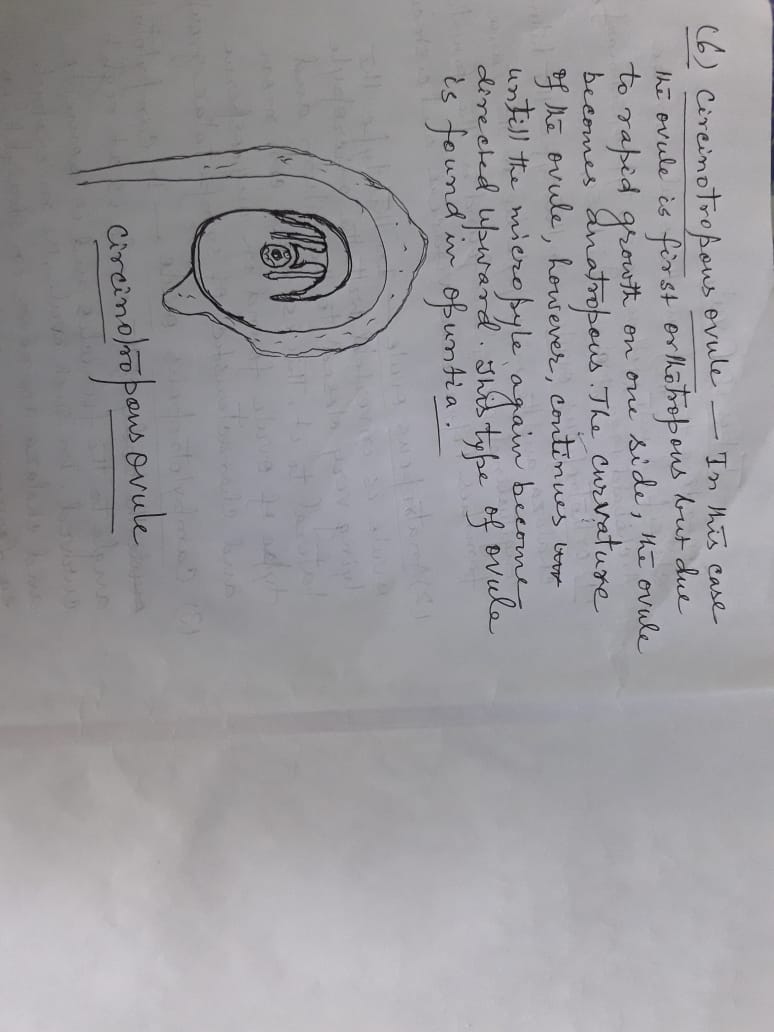 (6) Circinotropous ovule — In this case
the ovule is first orthotropous but due
to rapid growth on one side, the ovule
becomes anatropous. The curvature
of the ovule, however, continues
untill the micropyle again become
directed upward. This type of ovule
is found in opuntia.
Circinotropous ovule